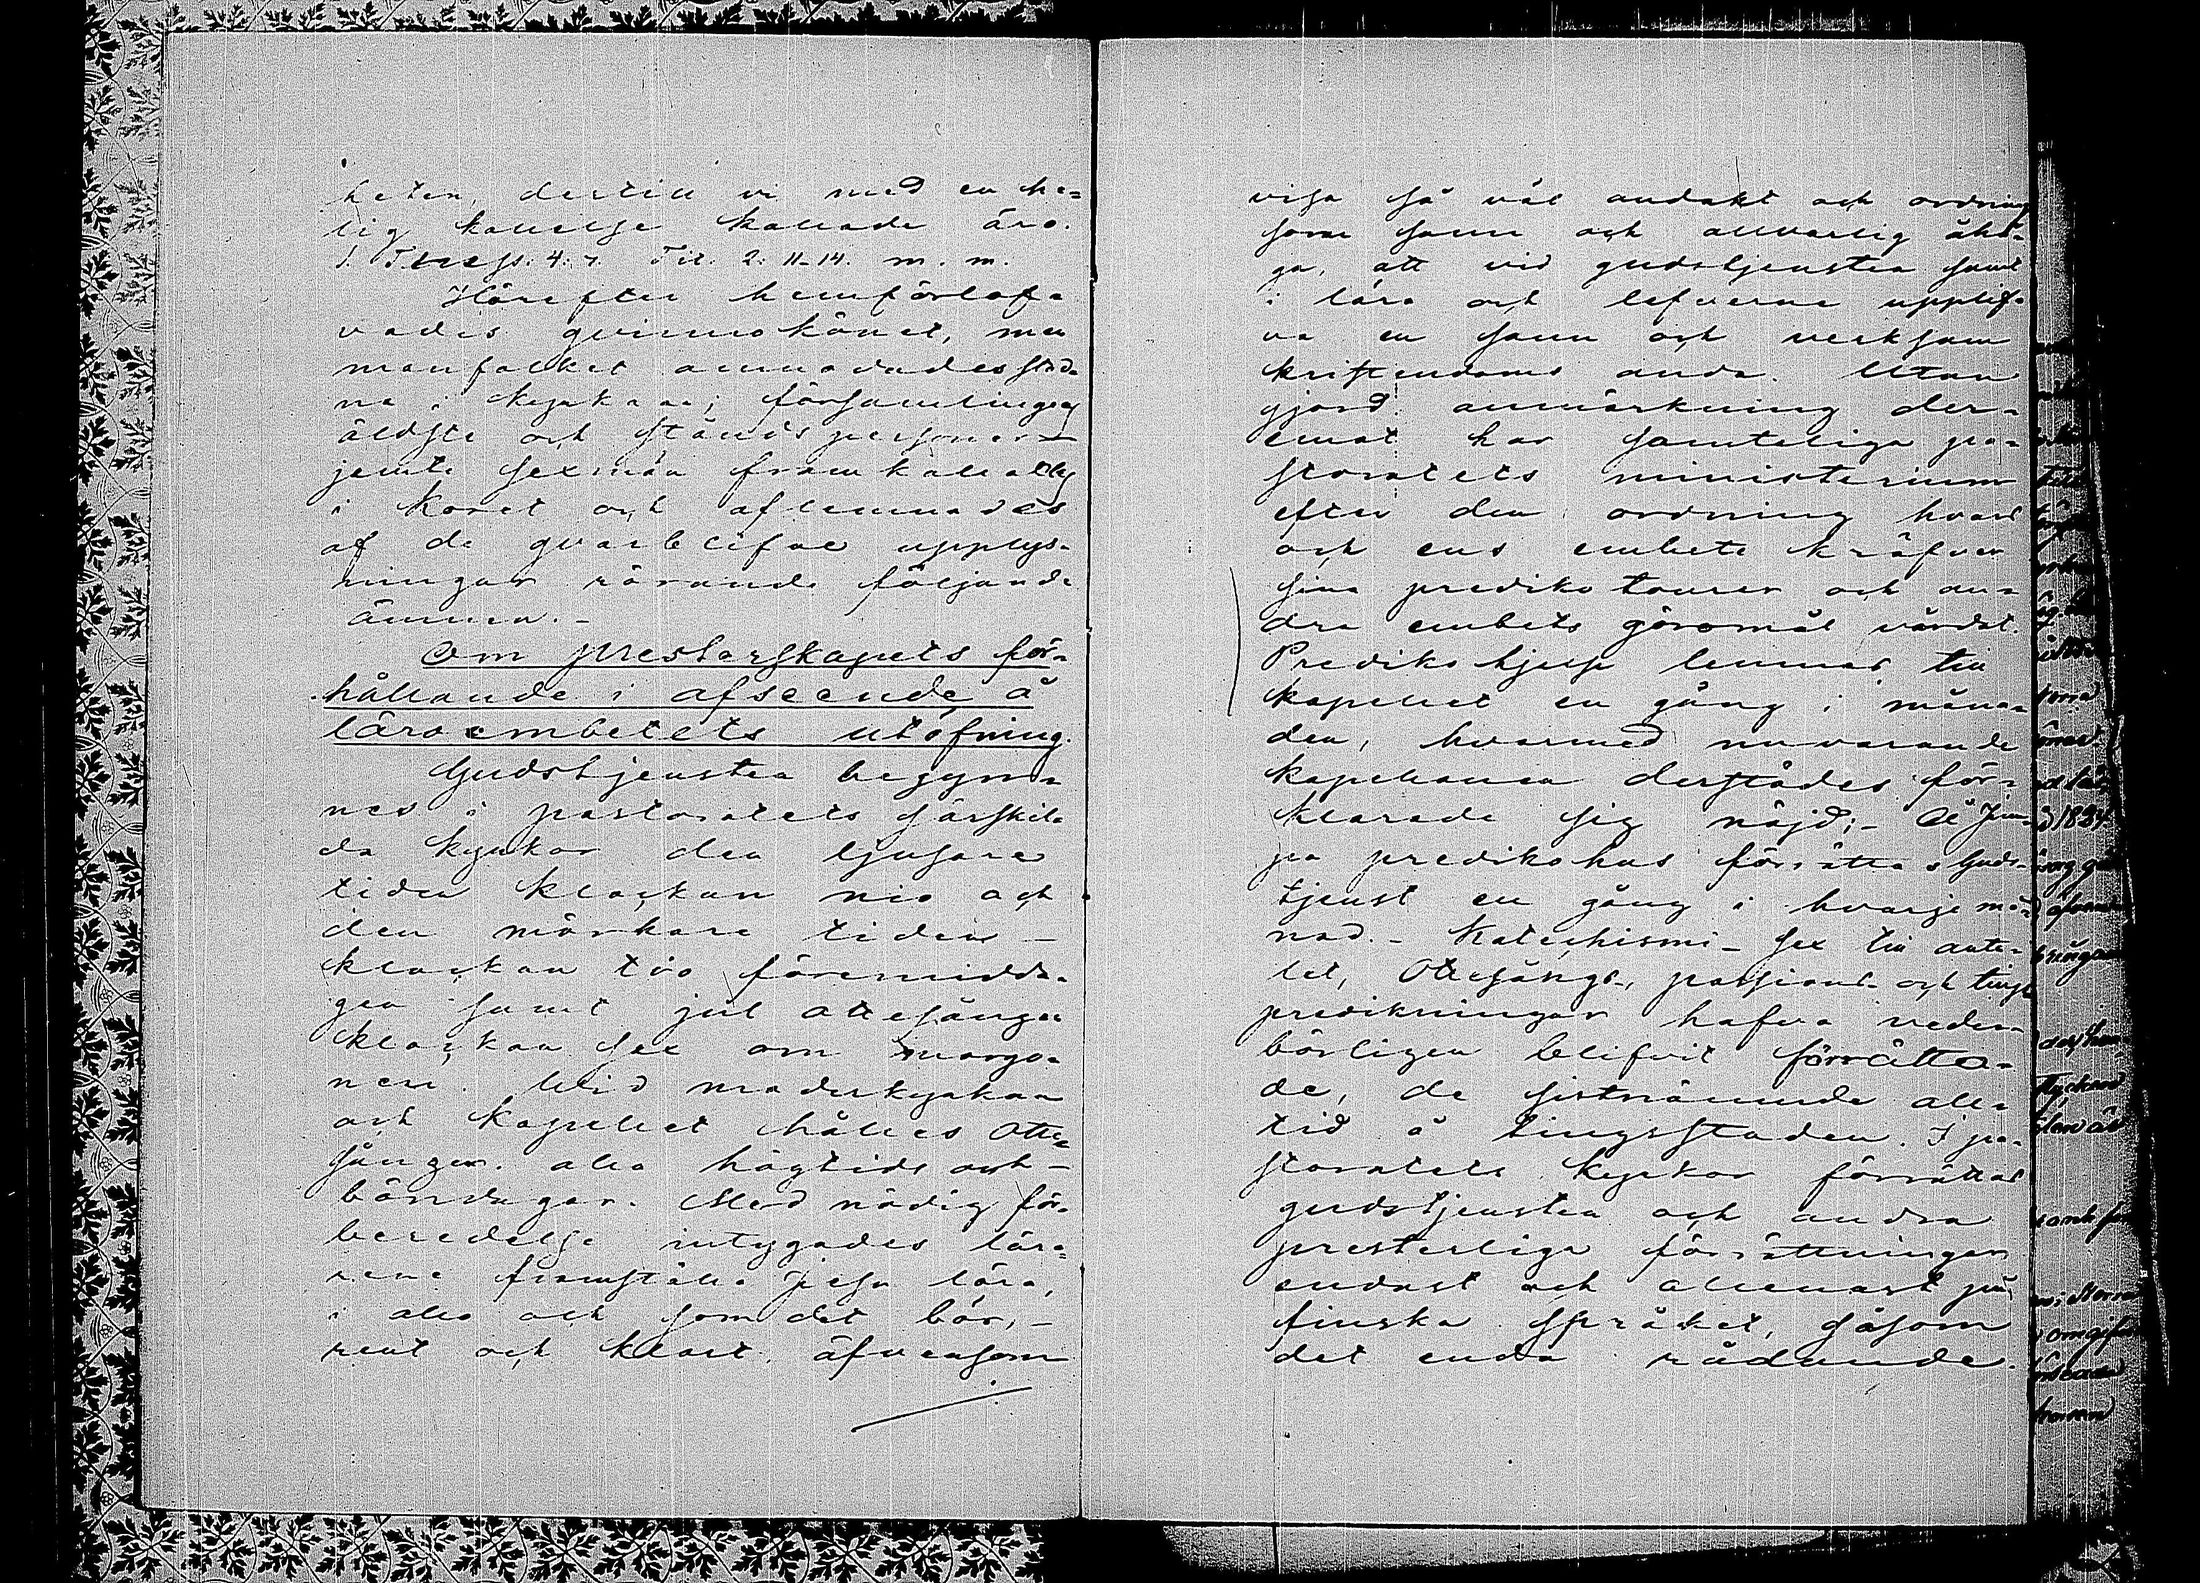 heten, dertill vi med en he-
lig kallelse kallade äro.
1. Thess. 4: 7. Tit. 2: 11-14. m. m.
Härefter hemförlof-
vades qvinnokönet, men
manfolket anmodades stad-
na i kyrkan; församlingens
äldste och ståndspersoner
jemte sexmän framkallades
i koret och aflemnades
af de qvarblifne upplys-
ningar rörande följande
ämnen.-
Om presterskapets för-
hållande i afseende å
läroembetets utöfning.
Gudstjensten begyn-
nes i pastoratets särskil-
da kyrkor den ljusare
tiden klockan nio och
den mörkare tiden -
klockan tio föremidda-
gen samt jul ottesången
klockan sex om morgo-
nen. Wid moderkyrkan
och kapellet hålles otte-
sången alla högtids och -
böndagar. Med nödig för-
beredelse intygades lära-
rene framställa Jesu lära,
i allo och som det bör, -
rent och klart, äfvensom
visa så väl andakt och ordning
som sann och allvarlig åhå-
ga, att vid gudstjensten samt
i lära och lefverne upplif-
va en sann och verksam
kristendoms anda. Utan
gjord anmärkning der-
emot har samteliga pa-
storatets ministerium
efter den ordning hvars
och ens embete kräfver
sina prediko tourer och an-
dra embets göromål vårdat.
Prediko hjelp lemnas till
kapellet en gång i måna-
den, hvarmed nuvarande
kapellanen derstädes för-
klarade sig nöjd; - Å Jim-
pa predikohus förrättas Guds-
tjenst en gång i hvarje må-
nad. - Katechismi- sex till anta-
let, Ottesångs-, passions- och tings
predikningar hafva veder-
börligen blifvit förrätta-
de, de sistnämnde all-
tid å tingsstaden. I pa-
storatets kyrkor förrättas
gudstjensten och andra
presterliga förrättningar
endast och allenast på
finska språket, såsom
det enda rådande.